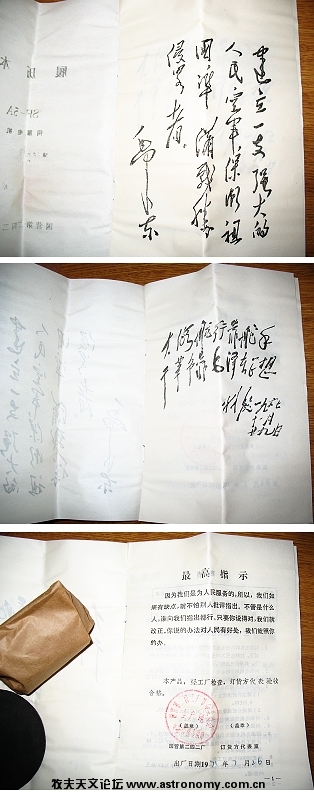 履历本
SP-5A
建立一支强大的
人民空军,保卫祖
国,準備战勝
侵略者。
毛泽东
大海航行靠舵手
干革命靠毛泽东思想
林彪
最高指示
因为我们是为人民服务的,所以,我们如
果有缺点,就不怕别人批评指出。不管是什么
人,谁向我们指出都行。只要你说得对,我们就
改正。你说的办法对人民有好处,我们就照你
的办。
本产品,经工厂检查,订货方代表验收
合格。
(盖章) (盖章)
国营第二四二厂 订货方代表室
出厂日期 年7月26日
—1—
牧夫天文论坛 www.astronomy.com.cn